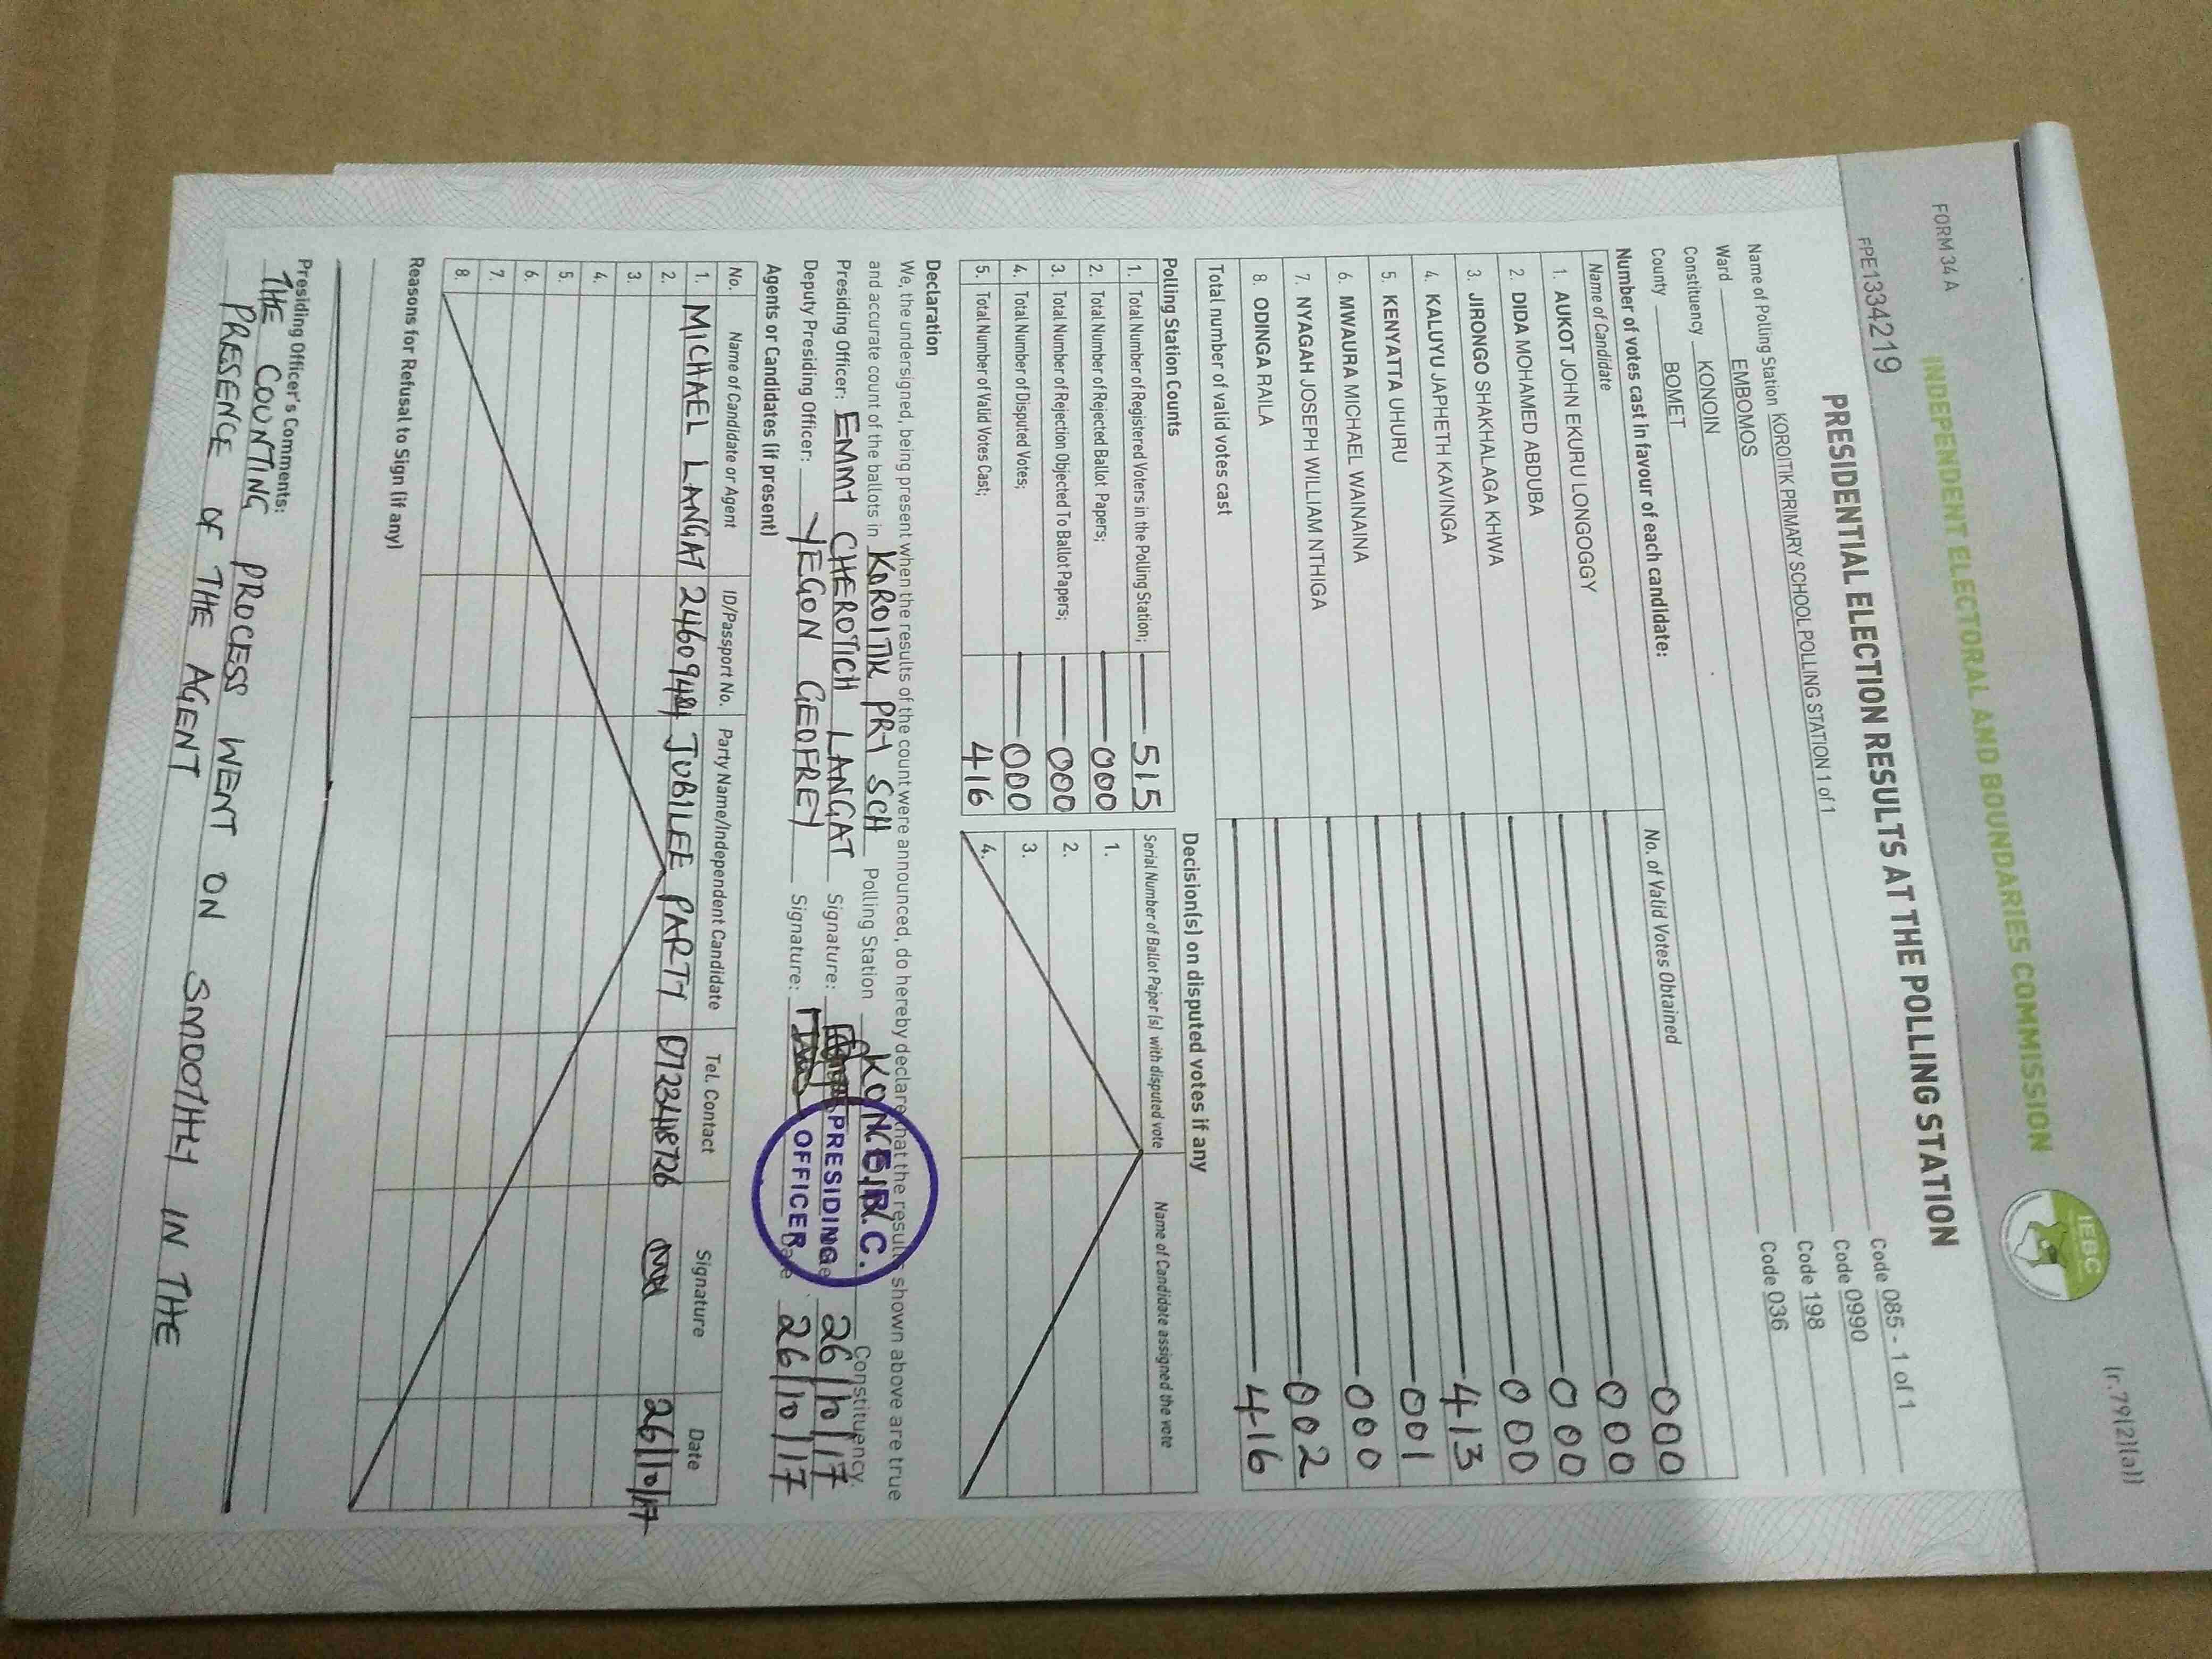 FORM 34 A
(r.79(2)(a))
INDEPENDENT ELECTORAL AND BOUNDARIES COMMISSION
IEBC
FPE1334219
PRESIDENTIAL ELECTION RESULTS AT THE POLLING STATION
Name of Polling Station KOROITIK PRIMARY SCHOOL POLLING STATION 1 of 1 Code 085 - 1 of 1
Ward EMBOMOS Code 0990
Constituency KONOIN Code 198
County BOMET Code 036
Number of votes cast in favour of each candidate:
Name of Candidate No. of Valid Votes Obtained
1. AUKOT JOHN EKURU LONGOGGY 000
2. DIDA MOHAMED ABDUBA 000
3. JIRONGO SHAKHALAGA KHWA 000
4. KALUYU JAPHETH KAVINGA 000
5. KENYATTA UHURU 413
6. MWAURA MICHAEL WAINAINA 001
7. NYAGAH JOSEPH WILLIAM NTHIGA 000
8. ODINGA RAILA 002
Total number of valid votes cast 416
Polling Station Counts
1. Total Number of Registered Voters in the Polling Station; 515
2. Total Number of Rejected Ballot Papers; 000
3. Total Number of Rejection Objected To Ballot Papers; 000
4. Total Number of Disputed Votes; 000
5. Total Number of Valid Votes Cast; 416
Decision(s) on disputed votes if any
Serial Number of Ballot Paper (s) with disputed vote Name of Candidate assigned the vote
1.
2.
3.
4.
Declaration
We, the undersigned, being present when the results of the count were announced, do hereby declare that the results shown above are true
and accurate count of the ballots in KOROITIK PRY SCH Polling Station Constituency.
Presiding Officer: EMMY CHEROTICH LANGAT Signature: 26/10/17
Deputy Presiding Officer: YEGON GEOFREY Signature: Date 26/10/17
PRESIDING
OFFICER
Agents or Candidates (if present)
No. Name of Candidate or Agent ID/Passport No. Party Name/Independent Candidate Tel. Contact Signature Date
1. MICHAEL LANGAT JUBILEE PARTY 26/10/17
2.
3.
4.
5.
6.
7.
8.
Reasons for Refusal to Sign (if any)
Presiding Officer's Comments:
THE COUNTING PROCESS WENT ON SMOOTHLY IN THE
PRESENCE OF THE AGENT